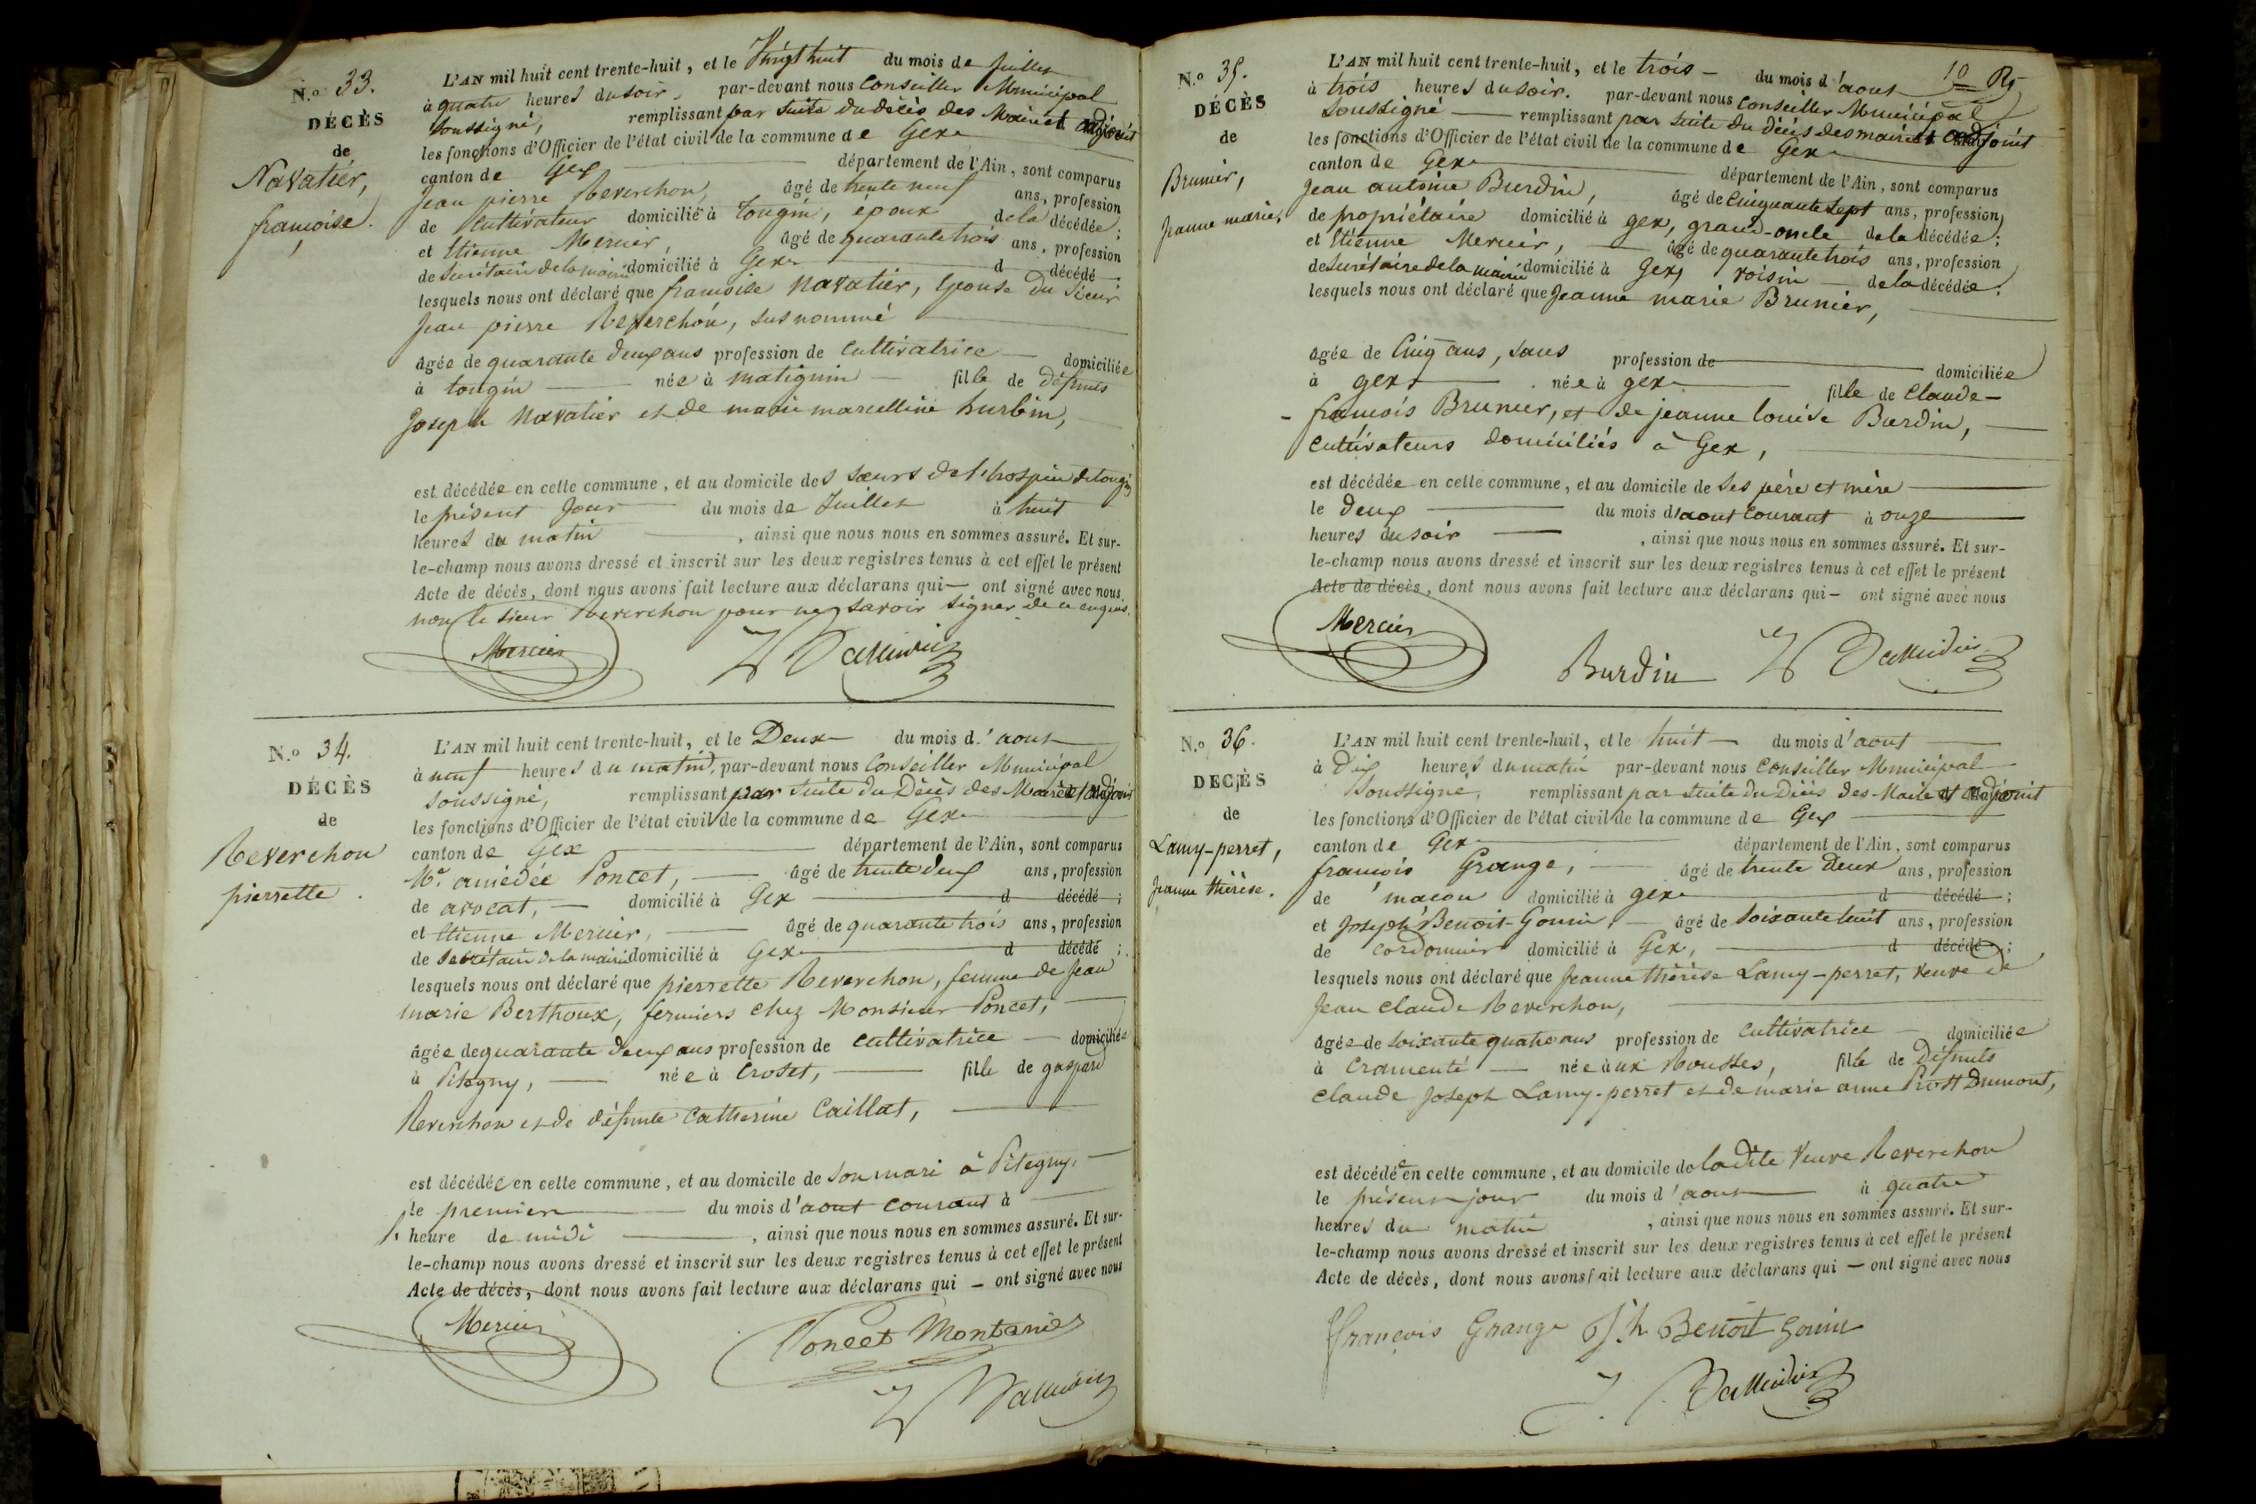 N.º 33.
DÉCÈS
de
Navatier,
françoise.
L'AN mil huit cent trente-huit, et le Vingt huit du mois de juillet
à quatre heures du soir, par-devant nous Conseiller Municipal
soussigné, remplissant par suite du décès des Maire et adjoint
les fonctions d'Officier de l'état civil de la commune de Gex
canton de Gex département de l'Ain, sont comparus
Jean pierre Reverchon, âgé de trente neuf ans, profession
de Cultivateur domicilié à tougin, époux de la décédée;
et Etienne Mercier, âgé de quarante trois ans, profession
de secrétaire de la mairie domicilié à Gex d décédé
lesquels nous ont déclaré que françoise Navatier, Epouse du sieur
Jean pierre Reverchon, susnommé
âgée de quarante deux ans profession de Cultivatrice domiciliée
à tougin née à matignin fille de défunts
Joseph Navatier et de marie marcelline hurbin,
est décédée en cette commune, et au domicile des sœurs de l'hospice de tougin
le présent Jour du mois de Juillet à huit
heures du matin, ainsi que nous nous en sommes assuré. Et sur-
le-champ nous avons dressé et inscrit sur les deux registres tenus à cet effet le présent
Acte de décès, dont nous avons fait lecture aux déclarans qui — ont signé avec nous,
non le sieur Reverchon pour ne savoir signer de ce enquis.
Mercier
N.º 34.
DÉCÈS
de
Reverchon
pierrette.
L'AN mil huit cent trente-huit, et le Deux du mois d'aout
à neuf heures du matin, par-devant nous Conseiller Municipal
soussigné, remplissant par suite du Décès des Maire et adjoint
les fonctions d'Officier de l'état civil de la commune de Gex
canton de Gex département de l'Ain, sont comparus
Mr. amédée Poncet, âgé de trente deux ans, profession
de avocat, domicilié à Gex d décédé;
et Etienne Mercier, âgé de quarante trois ans, profession
de secrétaire de la mairie domicilié à Gex d décédé;
lesquels nous ont déclaré que pierrette Reverchon, femme de Jean
marie Berthoux, fermiers chez Monsieur Poncet,
âgée de quarante deux ans profession de cultivatrice domiciliée
à Pitegny, née à Croset, fille de gaspard
Reverchon et de défunte Catherine Caillat,
est décédée en cette commune, et au domicile de son mari à Pitegny,
le premier du mois d'aout courant à
heure de midi, ainsi que nous nous en sommes assuré. Et sur-
le-champ nous avons dressé et inscrit sur les deux registres tenus à cet effet le présent
Acte de décès, dont nous avons fait lecture aux déclarans qui — ont signé avec nous
Mercier
Poncet Montanier
N.º 35.
DÉCÈS
de
Brunier,
Jeanne marie.
L'AN mil huit cent trente-huit, et le trois du mois d'aout
à trois heures du soir. par-devant nous Conseiller Municipal
soussigné remplissant par suite du décès des maire et adjoint
les fonctions d'Officier de l'état civil de la commune de Gex
canton de Gex département de l'Ain, sont comparus
Jean antoine Burdin, âgé de Cinquante sept ans, profession
de propriétaire domicilié à gex, grand-oncle de la décédée;
et Etienne Mercier, âgé de quarante trois ans, profession
de secrétaire de la mairie domicilié à Gex, voisin de la décédée;
lesquels nous ont déclaré que Jeanne marie Brunier,
âgée de Cinq ans, sans profession de domiciliée
à gex née à gex fille de Claude-
françois Brunier, et de jeanne louise Burdin,
cultivateurs domiciliés à Gex,
est décédée en cette commune, et au domicile de ses père et mère
le Deux du mois d'aout Courant à onze
heures du soir, ainsi que nous nous en sommes assuré. Et sur-
le-champ nous avons dressé et inscrit sur les deux registres tenus à cet effet le présent
Acte de décès, dont nous avons fait lecture aux déclarans qui — ont signé avec nous
Mercier
Burdin
N.º 36.
DÉCÈS
de
Lamy-perret,
Jeanne thérèse.
L'AN mil huit cent trente-huit, et le huit du mois d'aout
à Dix heures du matin par-devant nous Conseiller Municipal
soussigné, remplissant par suite du Décès des Maire et adjoint
les fonctions d'Officier de l'état civil de la commune de Gex
canton de Gex département de l'Ain, sont comparus
françois Grange, âgé de trente Deux ans, profession
de maçon domicilié à gex d décédé;
et Joseph Benoit-Gonin, âgé de soixante huit ans, profession
de cordonnier domicilié à Gex, d décédé;
lesquels nous ont déclaré que Jeanne thérèse Lamy-perret, veuve de
Jean Claude Reverchon,
âgée de soixante quatre ans profession de cultivatrice domiciliée
à Cramenté née aux Rousses, fille de Défunts
Claude Joseph Lamy-perret et de marie anne Prost Dumont,
est décédée en cette commune, et au domicile de ladite Veuve Reverchon
le présent jour du mois d'aout à quatre
heures du matin, ainsi que nous nous en sommes assuré. Et sur-
le-champ nous avons dressé et inscrit sur les deux registres tenus à cet effet le présent
Acte de décès, dont nous avons fait lecture aux déclarans qui — ont signé avec nous
françois Grange Jh Benoit Gonin